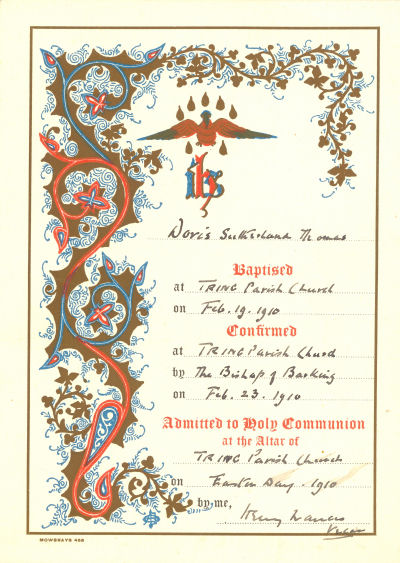 ihs
Doris Sutherland Thomas
Baptised
at TRING Parish Church
on Feb. 19. 1910
Confirmed
at TRING Parish Church
by The Bishop of Barking
on Feb. 23. 1910
Admitted to Holy Communion
at the Altar of
TRING Parish Church
on Easter Day. 1910
by me, Henry Francis
Vicar
MOWBRAYS 468